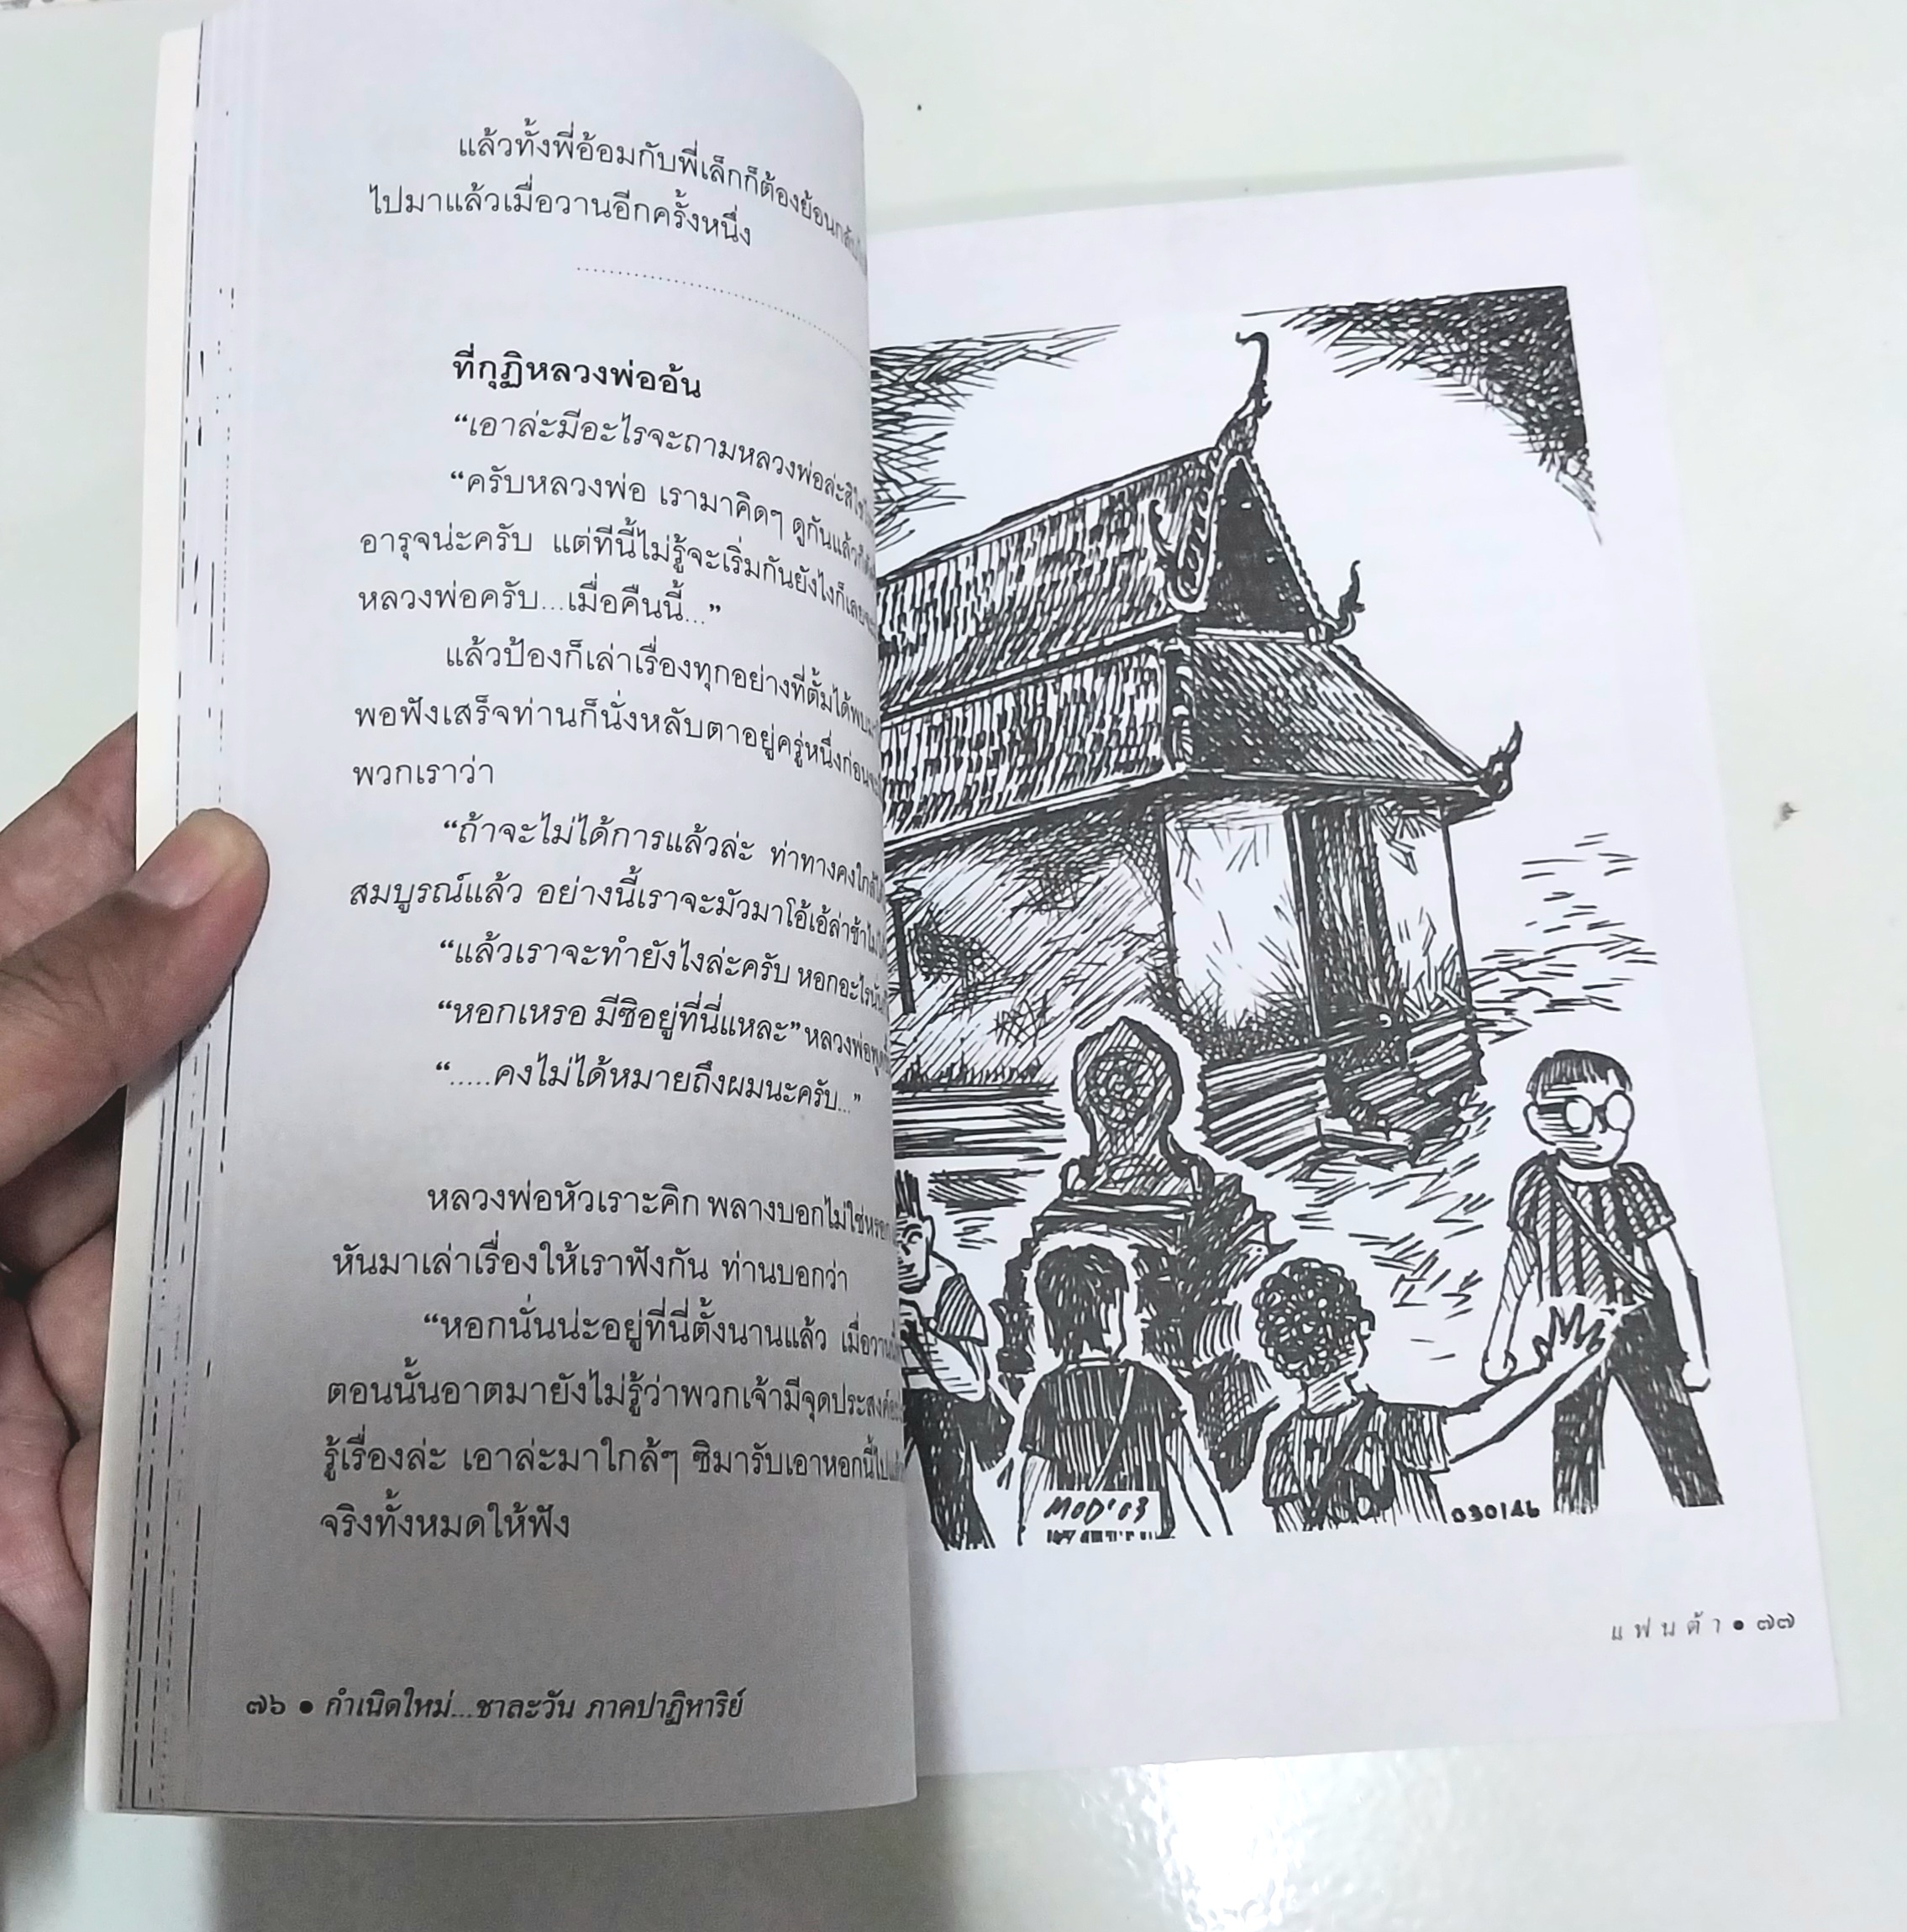 แล้วทั้งพี่อ้อมกับพี่เล็กก็ต้องย้อนกลับไป
ไปมาแล้วเมื่อวานอีกครั้งหนึ่ง
ที่กุฏิหลวงพ่ออ้น
“เอาล่ะมีอะไรจะถามหลวงพ่อล่ะสิ
“ครับหลวงพ่อ เรามาคิดๆ ดูกันแล้วก็
อารุจน่ะครับ แต่ทีนี้ไม่รู้จะเริ่มกันยังไงก็เลย
หลวงพ่อครับ...เมื่อคืนนี้...”
แล้วป้องก็เล่าเรื่องทุกอย่างที่ตั้มได้พบ
พอฟังเสร็จท่านก็นั่งหลับตาอยู่ครู่หนึ่งก่อน
พวกเราว่า
“ถ้าจะไม่ได้การแล้วล่ะ ท่าทางคงใกล้
สมบูรณ์แล้ว อย่างนี้เราจะมัวมาโอ้เอ้ล่าช้า
“แล้วเราจะทำยังไงล่ะครับ หอกอะไร
“หอกเหรอ มีซิอยู่ที่นี่แหละ” หลวงพ่อ
“.....คงไม่ได้หมายถึงผมนะครับ...”
หลวงพ่อหัวเราะคิก พลางบอกไม่ใช่หรอก
หันมาเล่าเรื่องให้เราฟังกัน ท่านบอกว่า
“หอกนั่นน่ะอยู่ที่นี่ตั้งนานแล้ว เมื่อวาน
ตอนนั้นอาตมายังไม่รู้ว่าพวกเจ้ามีจุดประสงค์
รู้เรื่องล่ะ เอาล่ะมาใกล้ๆ ซิมารับเอาหอกนี้ไป
จริงทั้งหมดให้ฟัง
๗๖ ● กำเนิดใหม่...ชาละวัน ภาคปาฏิหาริย์
MOD'03
030146
แฟนต้า ● ๗๗